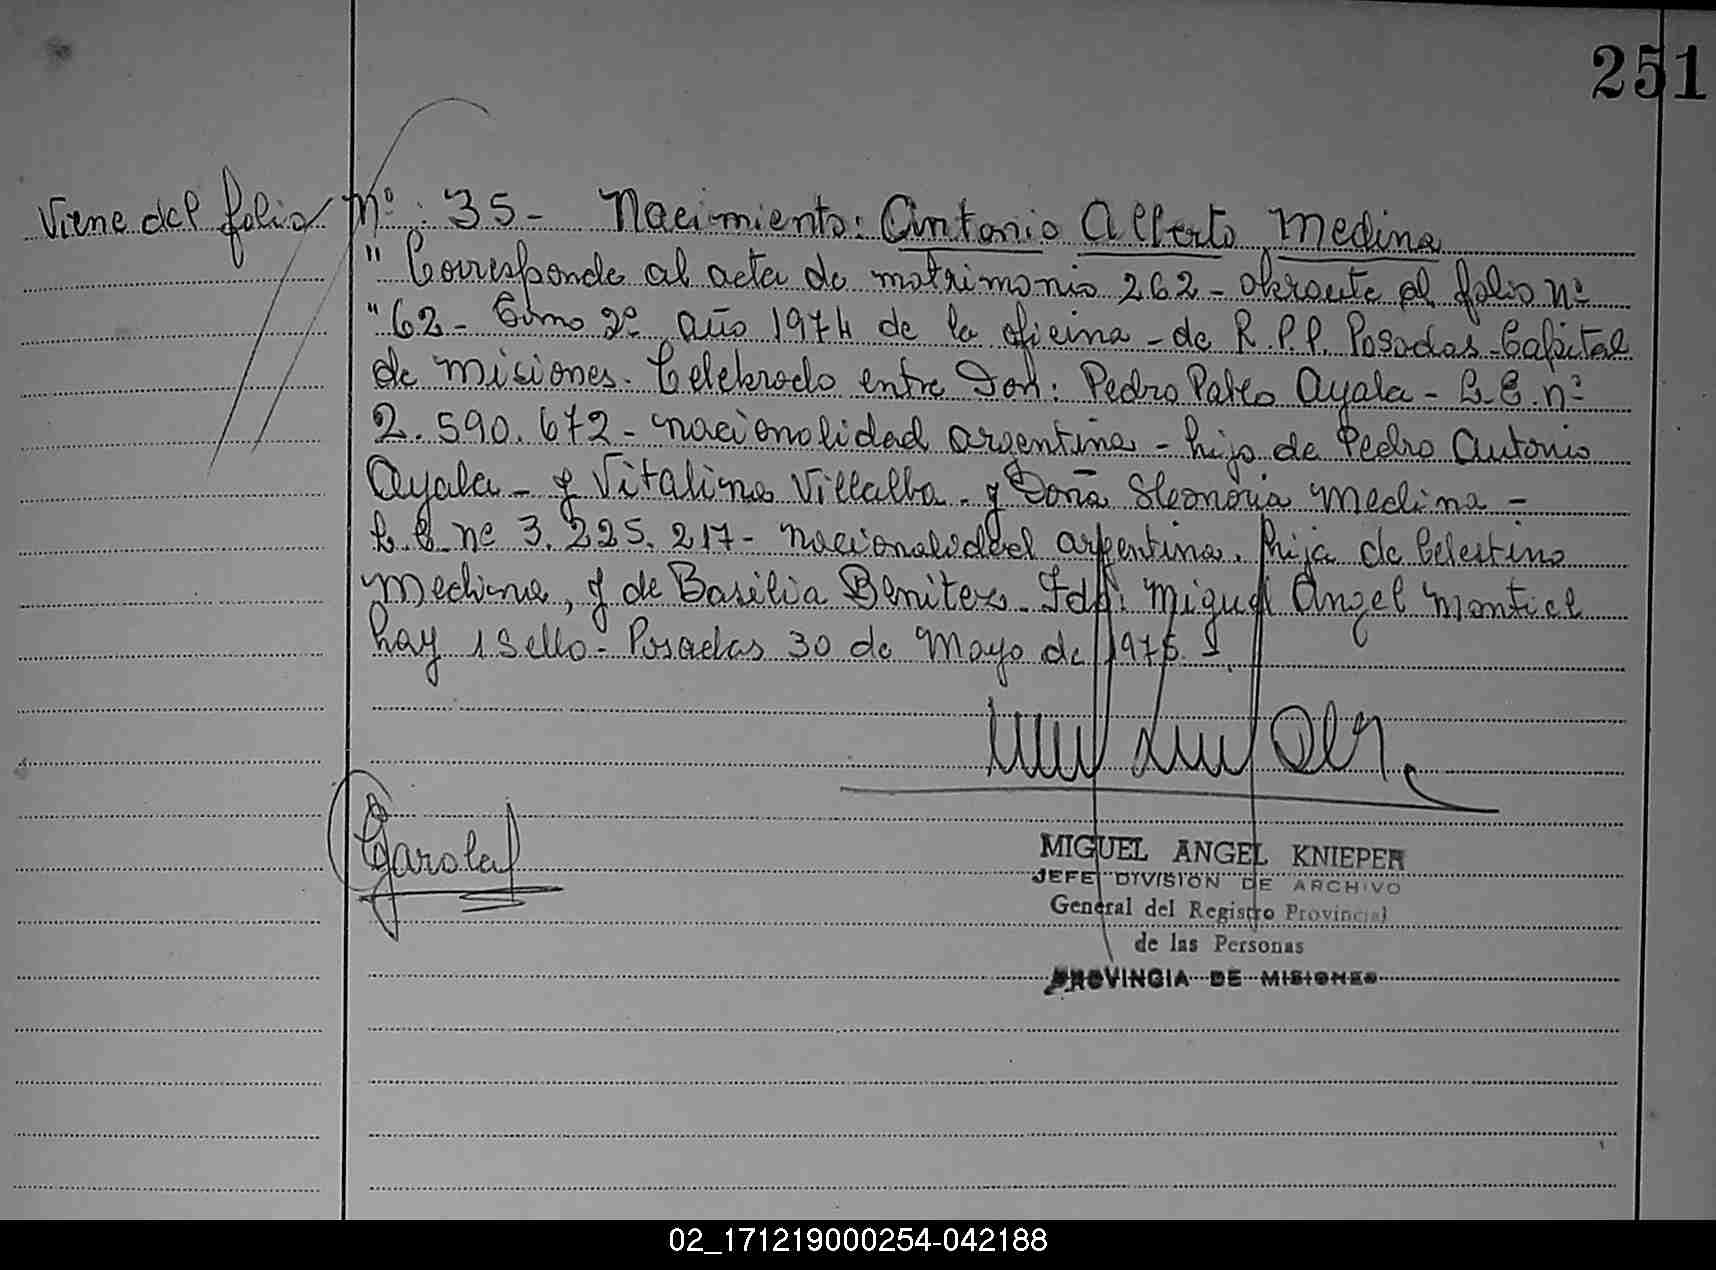 251
Viene del folio Nº: 35- Nacimiento: Antonio Alberto Medina
" Corresponde al acta de matrimonio 262- obrante al folio nº
" 62- Tomo 2º año 1974 de la oficina - de R.P.P. Posadas-Capital
de Misiones. Celebrado entre Don: Pedro Pablo Ayala - L.E. nº
2.590.672- nacionalidad argentina - hijo de Pedro Antonio
Ayala - y Vitalina Villalba - y Doña Eleonoria Medina -
L.C. nº 3.225.217- nacionalidad argentina. hija de Celestino
Medina, y de Basilia Benitez. Fdo: Miguel Angel Montiel
hay 1 Sello - Posadas 30 de Mayo de 1975.
MIGUEL ANGEL KNIEPER
JEFE DIVISION DE ARCHIVO
General del Registro Provincial
de las Personas
PROVINCIA DE MISIONES
02_171219000254-042188